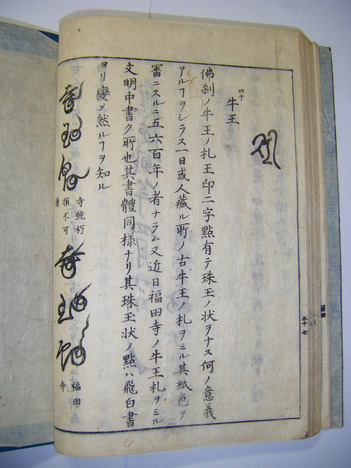 四十
牛王
佛刹ノ牛王ノ札王印二字點有テ珠玉ノ状ヲナス何ノ意義
アルヿヲシラス一日或人藏ル所ノ古牛王ノ札ヲミル其紙色ヲ
審ニスルニ五六百年ノ者ナラム又近日福田寺ノ牛王札ヲミル
文明中書ク所也其書體同様ナリ其珠玉状ノ點ハ飛白書
ヨリ變メ然ルヿヲ知ル
寺號朽
損不可
福田
寺